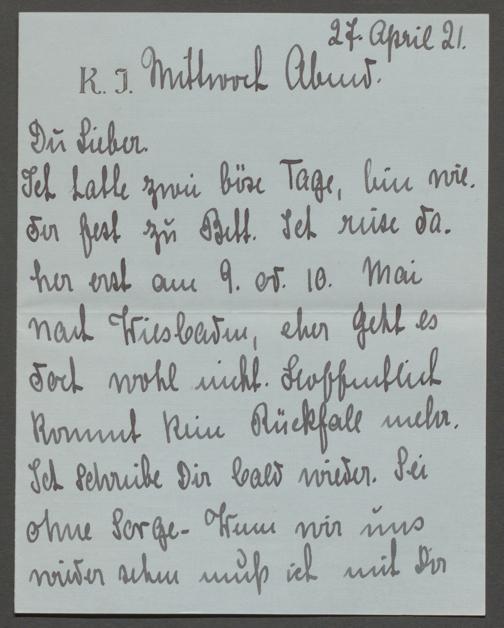 27. April 21.
K. J. Mittwoch Abend.
Du Lieber.
Ich hatte zwei böse Tage, bin wie-
der fest zu Bett. Ich reise da-
her erst am 9. od. 10. Mai
nach Wiesbaden, eher geht es
doch wohl nicht. Hoffentlich
kommt kein Rückfall mehr.
Ich schreibe Dir bald wieder. Sei
ohne Sorge- Wenn wir uns
wieder sehen muß ich mit Dir